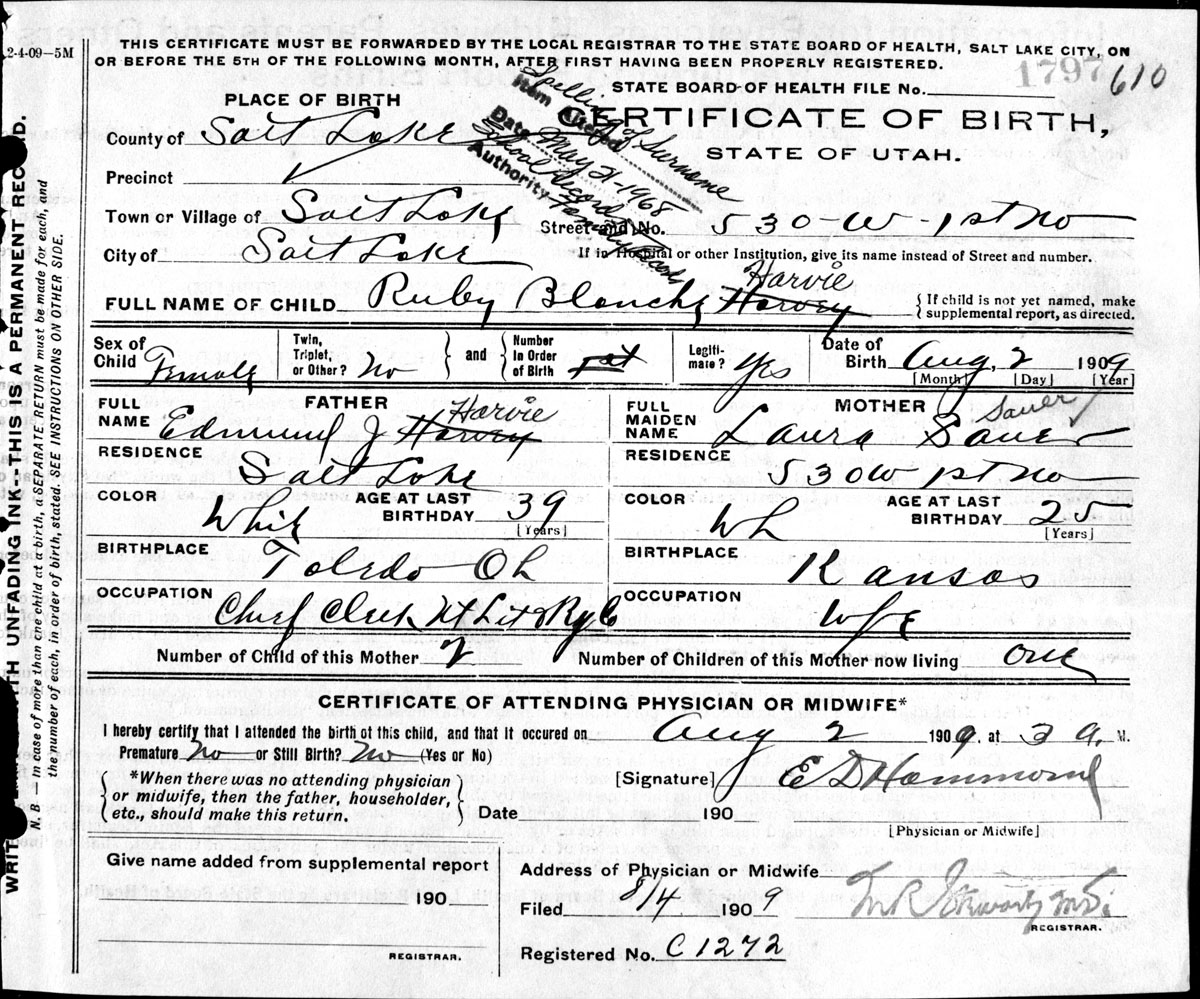 2-4-09—5M
THIS CERTIFICATE MUST BE FORWARDED BY THE LOCAL REGISTRAR TO THE STATE BOARD OF HEALTH, SALT LAKE CITY, ON
OR BEFORE THE 5TH OF THE FOLLOWING MONTH, AFTER FIRST HAVING BEEN PROPERLY REGISTERED.
1797 610
STATE BOARD OF HEALTH FILE No.
PLACE OF BIRTH
CERTIFICATE OF BIRTH,
STATE OF UTAH.
Item Altered Spelling of Surname
Date May 21-1968
Authority School Record
County of Salt Lake
Precinct
Town or Village of Salt Lake
Street and No. 530-W-1st No
City of Salt Lake
If in Hospital or other Institution, give its name instead of Street and number.
Harvie
FULL NAME OF CHILD Ruby Blanche Harvey
{ If child is not yet named, make
supplemental report, as directed.
Sex of Child Female
Twin, Triplet, or Other? No
and
Number In Order of Birth 1st
Legitimate? Yes
Date of Birth Aug, 2 1909
[Month] [Day] [Year]
FATHER
FULL NAME Edmund J Harvey Harvie
RESIDENCE Salt Lake
COLOR White
AGE AT LAST BIRTHDAY 39
[Years]
BIRTHPLACE Toledo Oh
OCCUPATION Chief Clerk Ut Lit & Ry Co
MOTHER
FULL MAIDEN NAME Laura Sauer Sauer
RESIDENCE 530 W 1st No
COLOR Wh
AGE AT LAST BIRTHDAY 25
[Years]
BIRTHPLACE Kansas
OCCUPATION Wfe
Number of Child of this Mother 2 Number of Children of this Mother now living One
CERTIFICATE OF ATTENDING PHYSICIAN OR MIDWIFE*
I hereby certify that I attended the birth of this child, and that it occured on Aug 2 1909, at 3 a. M.
Premature No or Still Birth? No (Yes or No)
{ *When there was no attending physician
or midwife, then the father, householder,
etc., should make this return. }
[Signature] E D Hammond
Date 190
[Physician or Midwife]
Give name added from supplemental report
190
REGISTRAR.
Address of Physician or Midwife
Filed 8/4 1909
REGISTRAR.
Registered No. C1272
THIS IS A PERMANENT RECORD.
UNFADING INK
N. B.—In case of more than one child at a birth, a SEPARATE RETURN must be made for each, and
the number of each, in order of birth, stated. SEE INSTRUCTIONS ON OTHER SIDE.